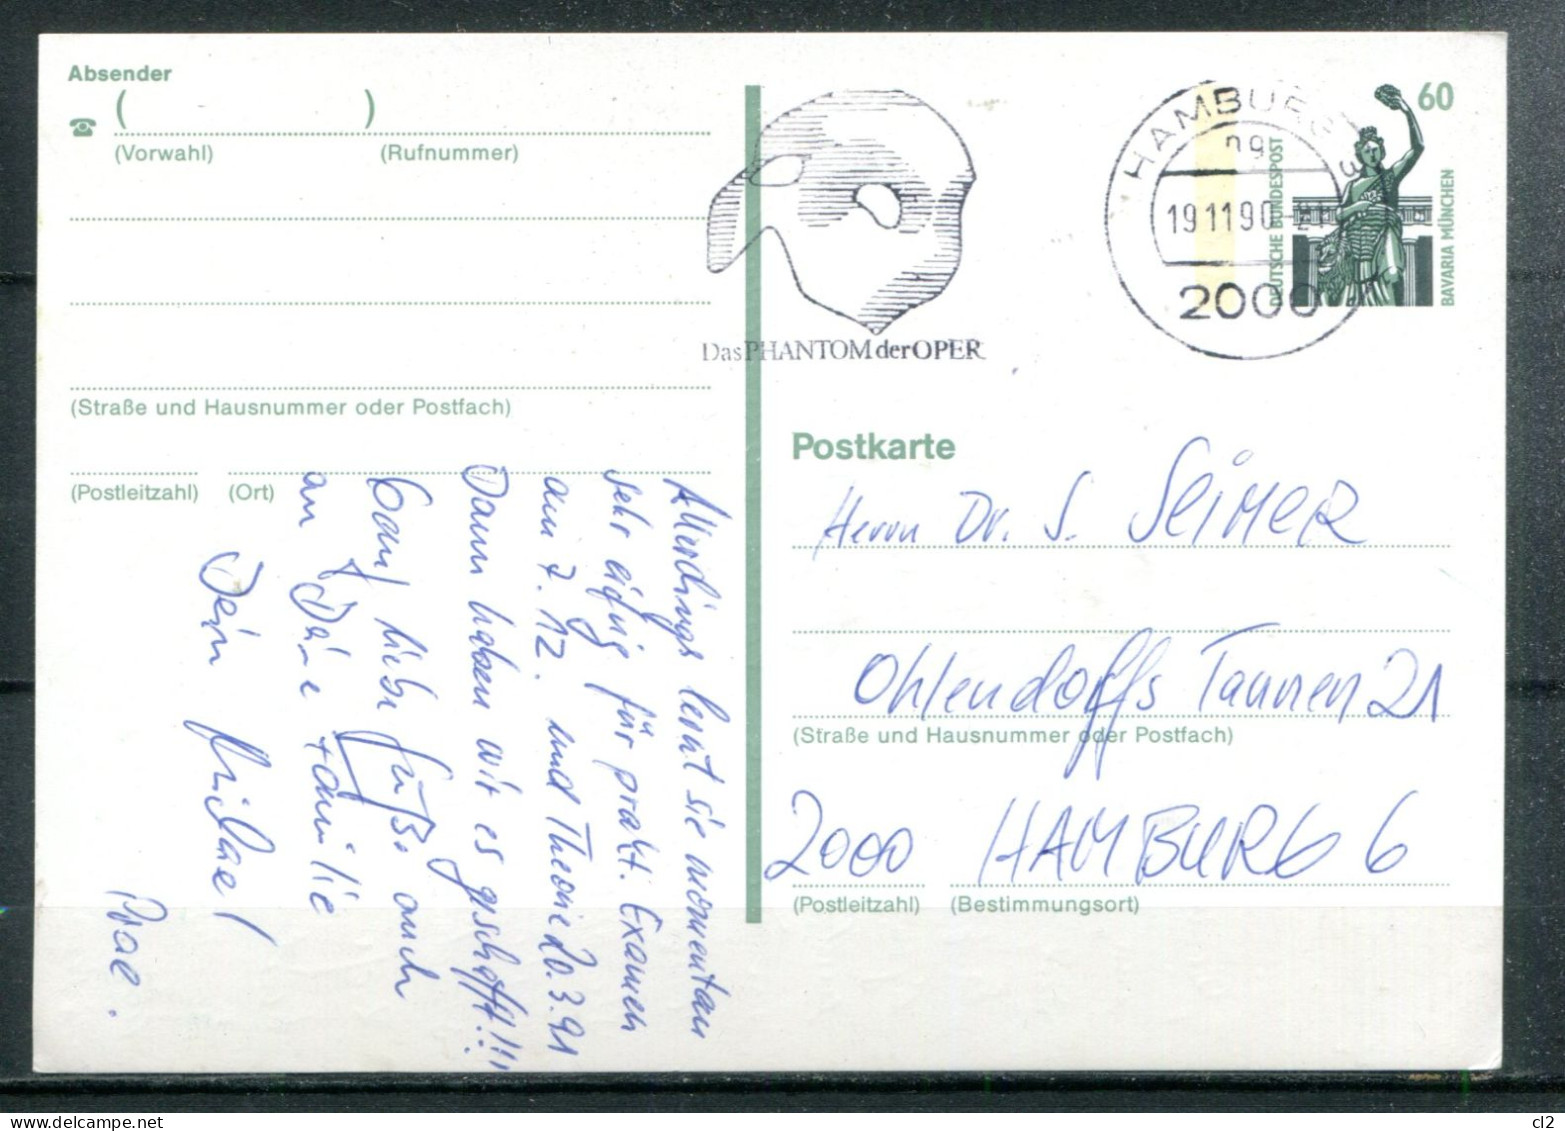 Absender
☎ ( )
(Vorwahl) (Rufnummer)
(Straße und Hausnummer oder Postfach)
(Postleitzahl) (Ort)
Das PHANTOM der OPER
HAMBURG
19.11.90-21
2000
60
DEUTSCHE BUNDESPOST
BAVARIA MÜNCHEN
Postkarte
Herrn Dr. S. SEIMER
Ohlendorffs Tannen 21
(Straße und Hausnummer oder Postfach)
2000 HAMBURG 6
(Postleitzahl) (Bestimmungsort)
Allerdings lernt sie momentan
sehr eifrig für prakt. Examen
am 7.12. und Theorie 20.3.91
Dann haben wir es geschafft!!!
Ganz liebe Grüße auch
an Deine Familie
Dein Michael
cl2